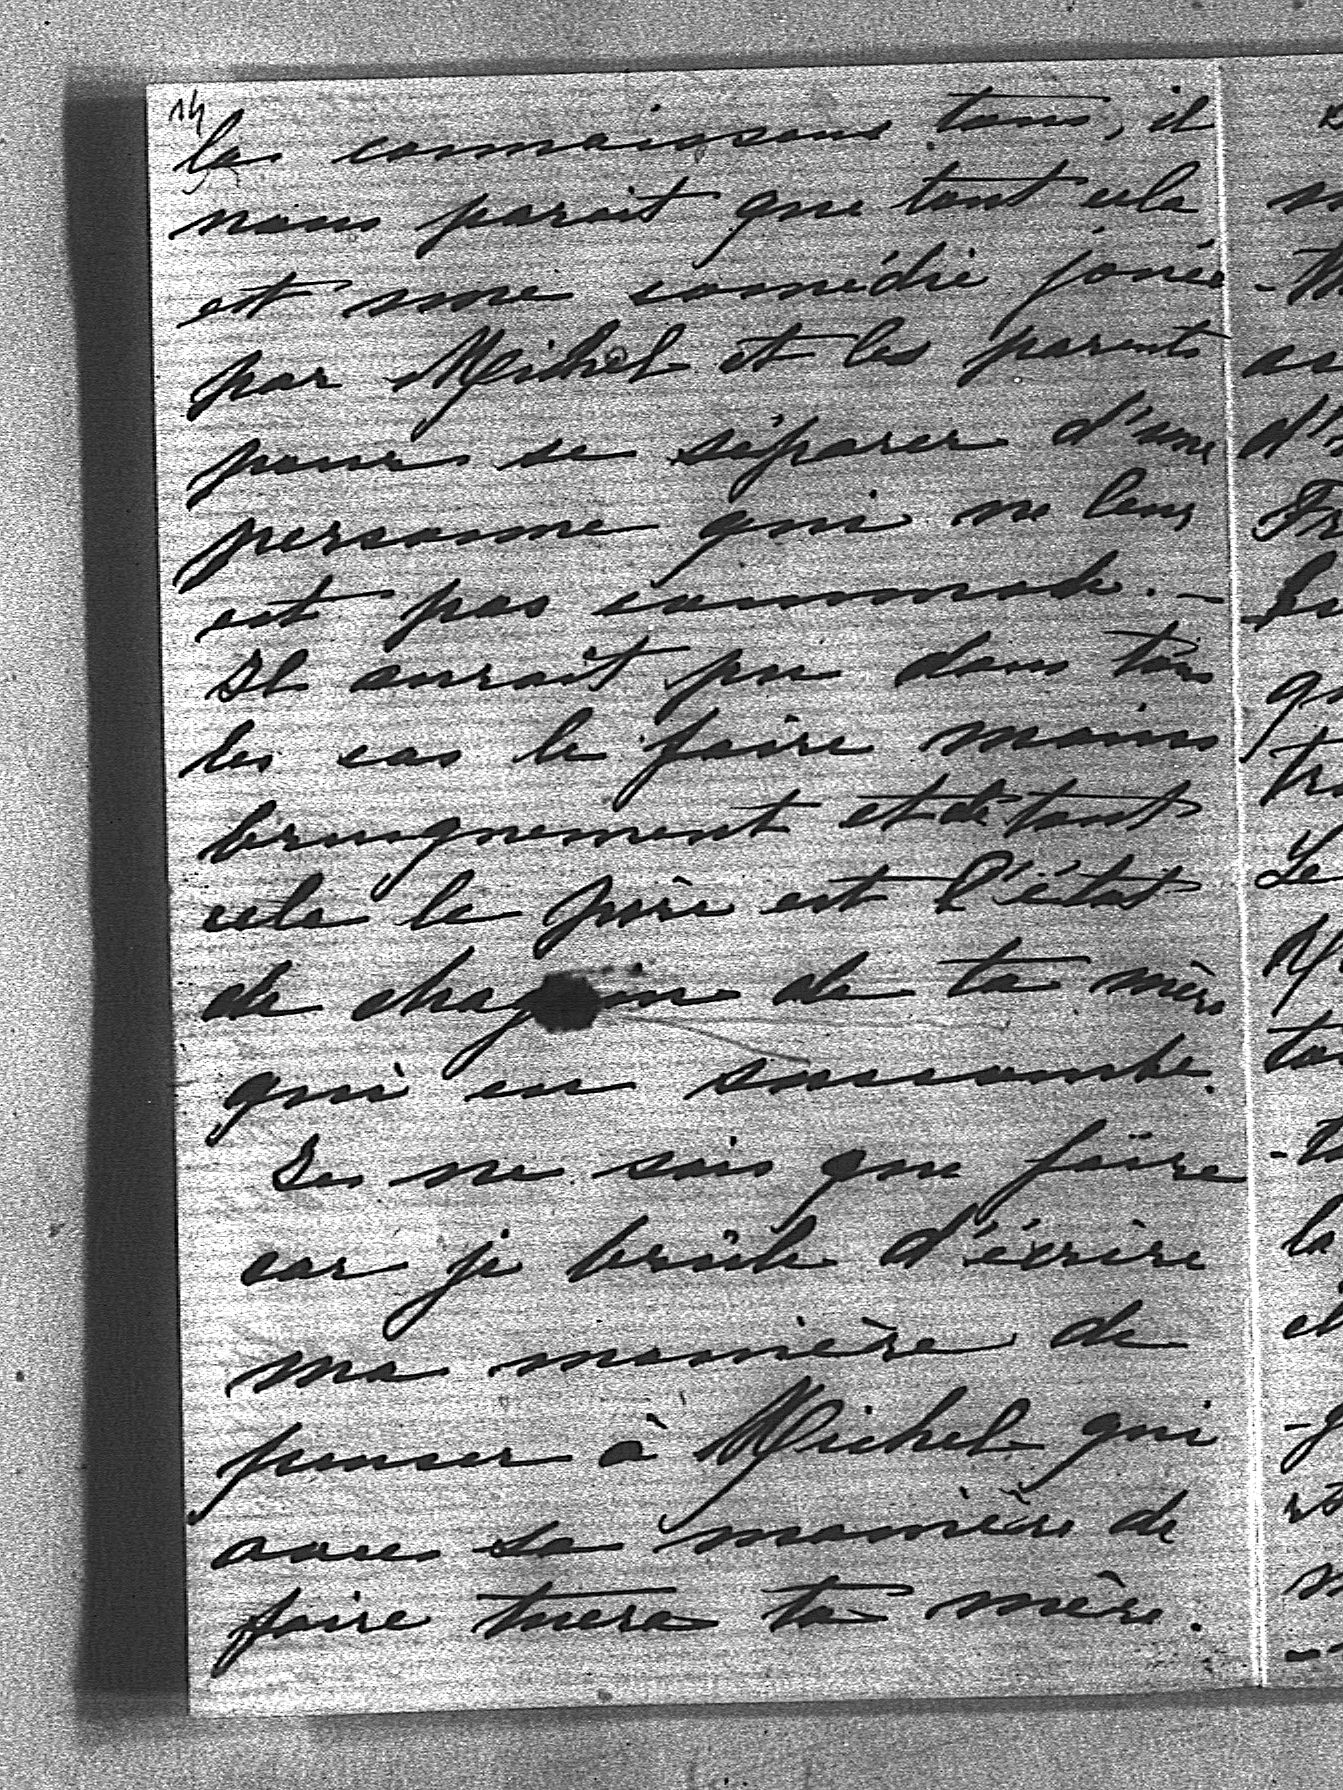 14
la connaissons tous, il
nous parait que tout cela
est une comédie jouée
par Michel et les parents
pour se séparer d'une
personne qui ne leur
est pas commode. -
Il aurait pu dans tous
les cas le faire moins
brusquement et de tout
cela le pire est l'état
de chagrin de ta mère
qui en succombe.
Je ne sais que faire
car je brûle d'écrire
ma manière de
penser à Michel qui
avec sa manière de
faire tuera ta mère.